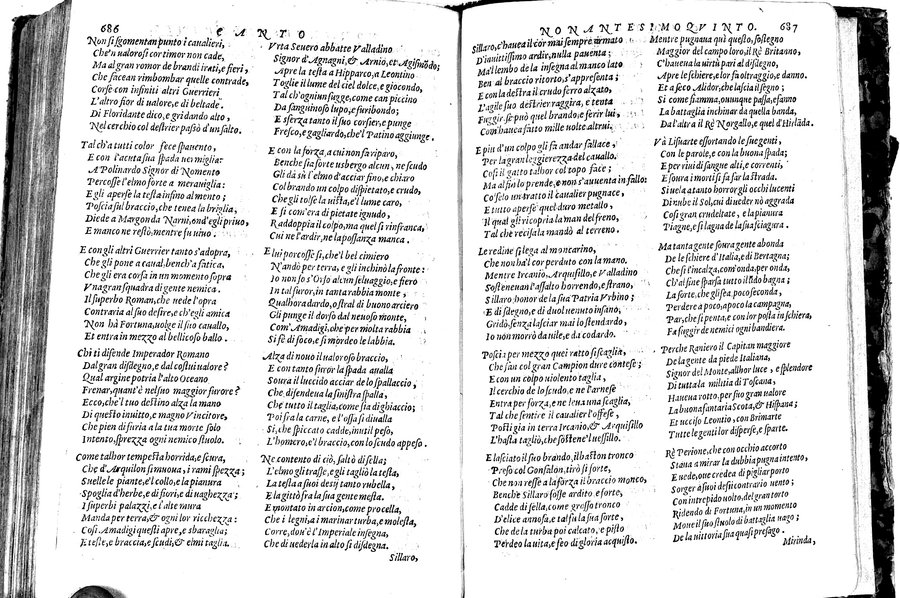 686
CANTO
Non si sgomentan punto i cavalieri,
Che'n ualorosi cor timor non cade,
Ma al gran romor de brandi irati, e fieri,
Che facean rimbombar quelle contrade,
Corse con infiniti altri Guerrieri
L'altro fior di ualore, e di beltade.
Di Floridante dico, e gridando alto,
Nel cerchio col destrier passò d'un salto.
Tal ch'a tutti color fece spauento,
E con l'acuta sua spada
A Polinardo Signor di Nomento
Percosse l'elmo forte a merauiglia:
E gli aperse la testa insino al mento;
Poscia sul braccio, che tenea la briglia,
Diede a Margonda Narni, ond'egli priuo,
E manco ne restò, mentre fu uiuo.
E con gli altri Guerrier tanto s'adopra,
Che gli pone a caual, bench'a fatica,
Che gli era corsa in un momento sopra
Vna gran squadra di gente nemica.
Il superbo Roman, che uede l'opra
Contraria al suo desire, e ch'egli amica
Non hà Fortuna, uolge il suo cauallo,
Et entra in mezzo al bellicoso ballo.
Chi ti difende Imperador Romano
Dal gran disdegno, e dal costui ualore?
Qual argine potria l'alto Oceano
Frenar, quant'è nel suo maggior furore?
Ecco, che'l tuo destino alza la mano
Di questo inuitto, e magno Vincitore,
Che pien di furia a la tua morte solo
Intento, sprezza ogni nemico stuolo.
Come talhor tempesta horrida, e scura,
Che d'Arquilon si muoua, i rami spezza;
Suelle le piante, e'l collo, e la pianura
Spoglia d'herbe, e di fiori, e di uaghezza;
I superbi palazzi, e l'alte mura
Manda per terra, & ogni lor ricchezza:
Cosi Amadigi questi apre, e sbaraglia;
E teste, e braccia, e scudi, & elmi taglia.
Vrta Seuero abbatte Valladino
Signor d'Agnagni, & Arnio, ec Agismodo;
Apre la testa a Hipparco, a Leontino
Toglie il lume del ciel dolce, e giocondo,
Tal ch'ogniun fugge, come can piccino
Da sanguinoso lupo, e furibondo;
E sferza tanto il suo corsier, e punge
Fresco, e gagliardo, che'l Patino aggiunge.
E con la forza, a cui non fa riparo,
Benche sia forte usbergo alcun, ne scudo
Gli dà su l'elmo d'acciar fino, e chiaro
Col brando un colpo dispietato, e crudo,
Che gli tolse la uista, e'l lume caro,
E si com'era di pietate ignudo,
Raddoppia il colpo, ma quel si rinfranca,
Cui ne l'ardir, ne la possanza manca.
E lui porcosse sì, che'l bel cimiero
N'andò per terra, e gli inchinò la fronte:
Io non so s'Orso alcun seluaggio, e fiero
In tal furor, in tanta rabbia monte,
Qualhora dardo, o stral di buono arciero
Gli punge il dorso dal neuoso monte,
Com'Amadigi, che per molta rabbia
Si fè di foco, e si morde le labbia.
Alza di nouo il ualoroso braccio,
E con tanto furor la spada aualla
Soura il luccido acciar de lo spallaccio,
Che difendeua la sinistra spalla,
Che tutto il taglia, come sia di ghiaccio;
Poi fra la carne, e l'ossa si diualla
Sì, che spiccato cadde, inutil peso,
L'homero, e'l braccio, con lo scudo appeso.
Ne contento di ciò, saltò di sella;
L'elmo gli trasse, e gli tagliò la testa,
La testa a suoi desij tanto rubella,
E la gittò fra la sua gente mesta.
E montato in arcion, come procella,
Che i legni, a i marinar turba, e molesta,
Corre, dou'è l'Imperiale insegna,
Che di uederla in alto si disdegna.
Sillaro,
NONANTESIMOQVINTO.
687
Sillaro, c'hauea il cor mai sempre armato
D'inuittissimo ardir, nulla pauenta;
Ma'l lembo de la insegna al manco lato
Ben al braccio ritorto, s'appresenta;
E con la destra il crudo ferro alzato,
L'agile suo destrier raggira, e tenta
Fuggir, se può quel brando, e ferir lui,
Com'hauea fatto mille uolte altrui.
E piu d'un colpo gli fà andar fallace,
Per la gran leggierezza del cauallo.
Cosi il gatto talhor col topo face;
Ma al fin lo prende, e non s'auuenta in fallo:
Cosè lo un tratto il caualier pugnace,
E tutto aperse quel duro metallo,
Il qual gli ricopria la man del freno,
Tal che recisa la mandò al terreno.
Le redine si lega al moncarino,
Che non hà'l cor perduto con la mano.
Mentre Ircanio, Arquifillo, e Valladino
Sostenean l'assalto horrendo, e strano,
Sillaro, honor de la sua Patria Vrbino;
E di sdegno, e di duol uenuto insano,
Gridò, senza lasciar mai lo stendardo,
Io non morrò da uile, e da codardo.
Posci per mezzo quei ratto si scaglia,
Che san col gran Campion dure contese;
E con un colpo uiolento taglia,
Il cerchio de lo scudo, e ne l'arnese
Entra per forza, e ne leua una scaglia,
Tal che sentire il caualier l'offese,
Postigia in terra Arcanio, & Arquifillo
L'hasta tagliò, che sostene'l uessillo.
E lasciato il suo brando, il baston tronco
Preso col Gonfalon, tirò sì forte,
Che non resse a la forza il braccio monco,
Benche Sillaro fosse ardito, e forte,
Cadde di sella, come grosso tronco
D'elice annosa, e tal fu la sua forte,
Che de la turba poi calcato, e pisto
Perdeo la uita, e feo di gloria acquisto.
Mentre pugnaua quì questo, sostegno
Maggior del campo loro, il Rè Britanno,
C'haueua la uirtù pari al disdegno,
Apre le schiere, e lor fa oltraggio, e danno.
Et a seco Alidor, che lascia il segno;
Si come fiamma, ouunque passa, e fanno
La battaglia inchinar da quella banda,
Da l'altra il Rè Norgallo, e quel d'Hirlada.
Và Lisuarte essortando le sue genti,
Con le parole, e con la buona spada;
E per riui di sangue alti, e correnti,
E soura i morti si fa far la strada.
Siuela tanto horror gli occhi lucenti
Di nube il Sol, cui di ueder nò aggrada
Cosi gran crudeltate, e la pianura
Piagne, e si lagna de la sua sciagura.
Ma tanta gente soura gente abonda
De le schiere d'Italia, e di Bertagna;
Che si l'incalza, com'onda, per onda,
Ch'al fine sparsa tutto il lido bagna;
La sorte, che gli fea poco seconda,
Perdere a poco, a poco la campagna,
Par, che si penta, e con lor posta in schiera,
Fa fuggir de nemici ogni bandiera.
Perche Raniero il Capitan maggiore
De la gente da piede Italiana,
Signor del Monte, allhor luce, e splendore
Di tutta la militia di Toscana,
Haueua rotto, per suo gran ualore
La buona fantaria Scota, & Hispana;
Et ucciso Leontio, con Brimarte
Tutte le genti lor disperse, e sparte.
Rè Perione, che con occhio accorto
Staua a mirar la dubbia pugna intento,
E uede, oue credea di pigliar porto
Sorger a suoi desir contrario uento;
Con intrepido uolto, del gran torto
Ridendo di Fortuna, in un momento
Moue il suo stuolo di battaglia uago;
De la uittoria sua quasi presago.
Mirinda,